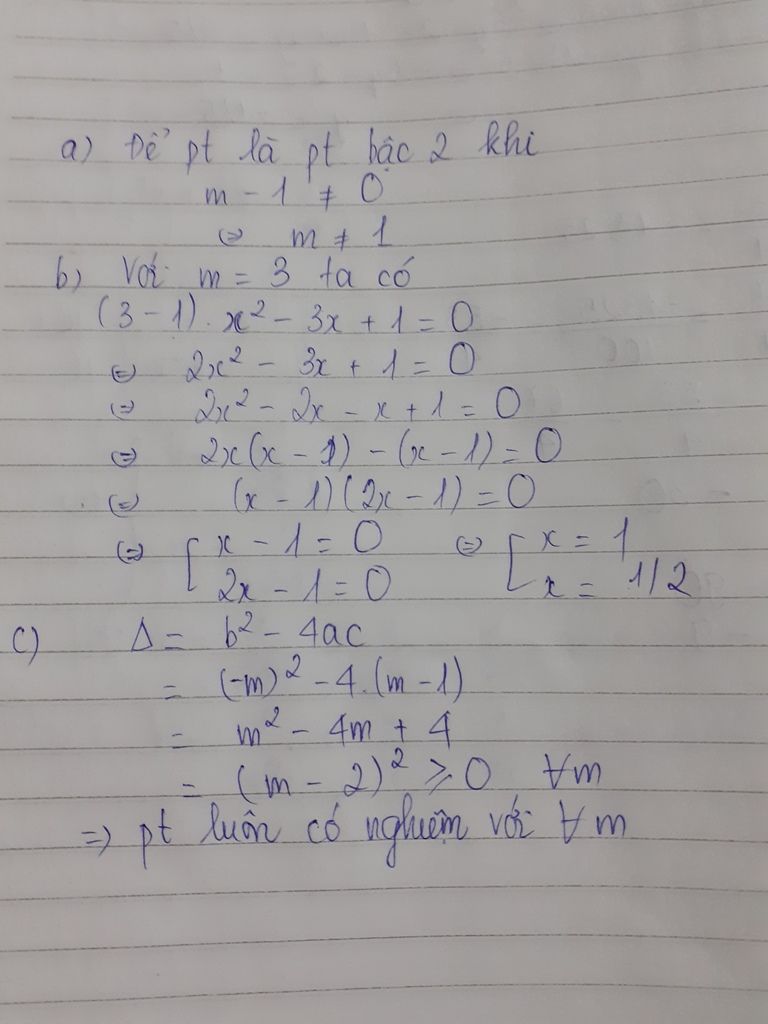 a) Để pt là pt bậc 2 khi
m - 1 ≠ 0
⇔ m ≠ 1
b) Với m = 3 ta có
(3 - 1). x² - 3x + 1 = 0
⇔ 2x² - 3x + 1 = 0
⇔ 2x² - 2x - x + 1 = 0
⇔ 2x(x - 1) - (x - 1) = 0
⇔ (x - 1)(2x - 1) = 0
⇔ [ x - 1 = 0 ⇔ [ x = 1
2x - 1 = 0 x = 1/2
c) Δ = b² - 4ac
= (-m)² - 4.(m - 1)
= m² - 4m + 4
= (m - 2)² ⩾ 0 ∀m
⇒ pt luôn có nghiệm với ∀m